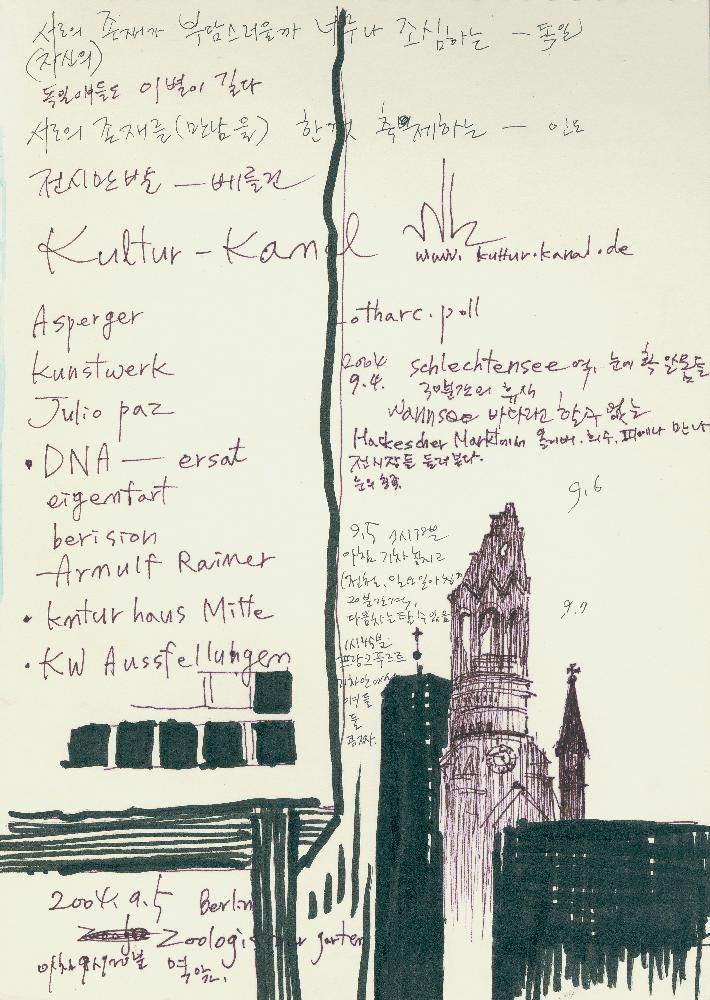 서로의 존재가 부담스러울까 너무나 조심하는 — 독일
(자신의)
독일애들은 이별이 길다
서로의 존재를 (만남을) 한껏 축제하는 — 인도
전시만발 — 베를린
Kultur-Kanal
www. kultur.kanal.de
Asperger
kunstwerk
Julio paz
• DNA — ersat
eigenfart
berision
-Arnulf Rainer
• kntur haus Mitte
• KW Aussfellungen
Lotharc.poll
2004 9.4. schlechtensee 역, 눈에 확
30분간의 휴식
wannsee 바다라고 할 수 있는
Hackescher Markt에서 피에나 만나
전시장들 둘러본다.
눈의
9.6
9.5
아침 기차 놓치고
(전철, 일요일아침
20분
다음차는 탈수 있음
1시45분
프랑크푸르트
9.7
2004. 9.5 Berlin
Zoologischer garten
아침 9시20분 역앞.